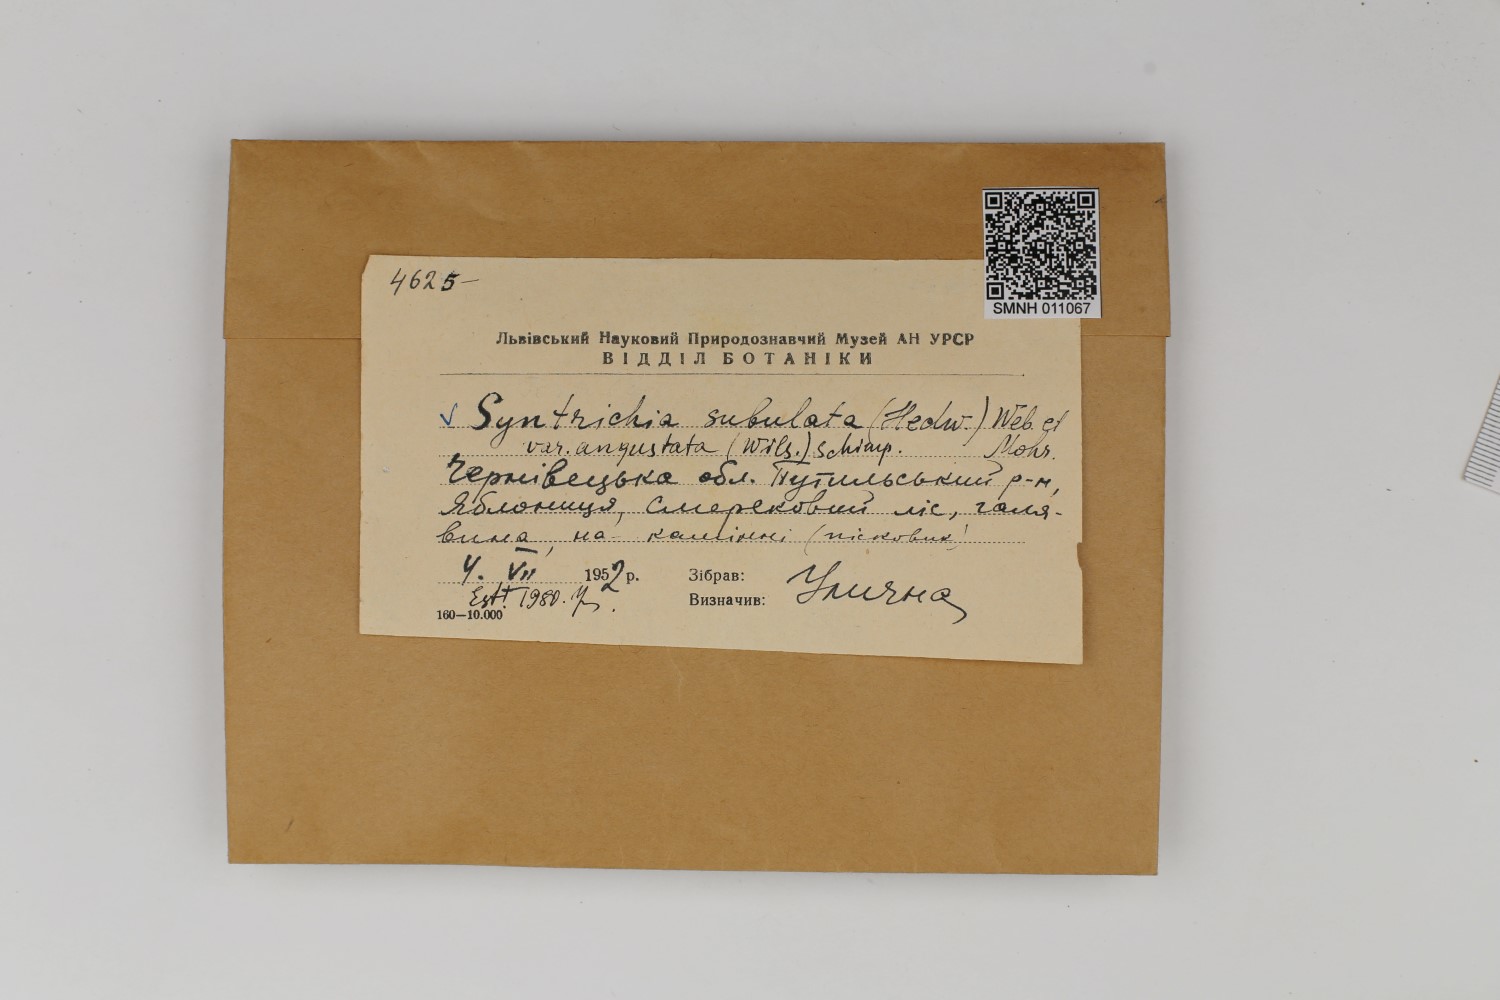 SMNH 011067
4625-
Львівський Науковий Природознавчий Музей АН УРСР
ВІДДІЛ БОТАНІКИ
✓ Syntrichia subulata (Hedw.) Web. et
var. angustata (Wils.) Schimp. Mohr.
Чернівецька обл. Путильський р-н,
Яблониця, смерековий ліс, галя-
вина, на камінні (пісковик)
4. VII 1952 р. Зібрав:
1980. Визначив: Улична
160—10.000